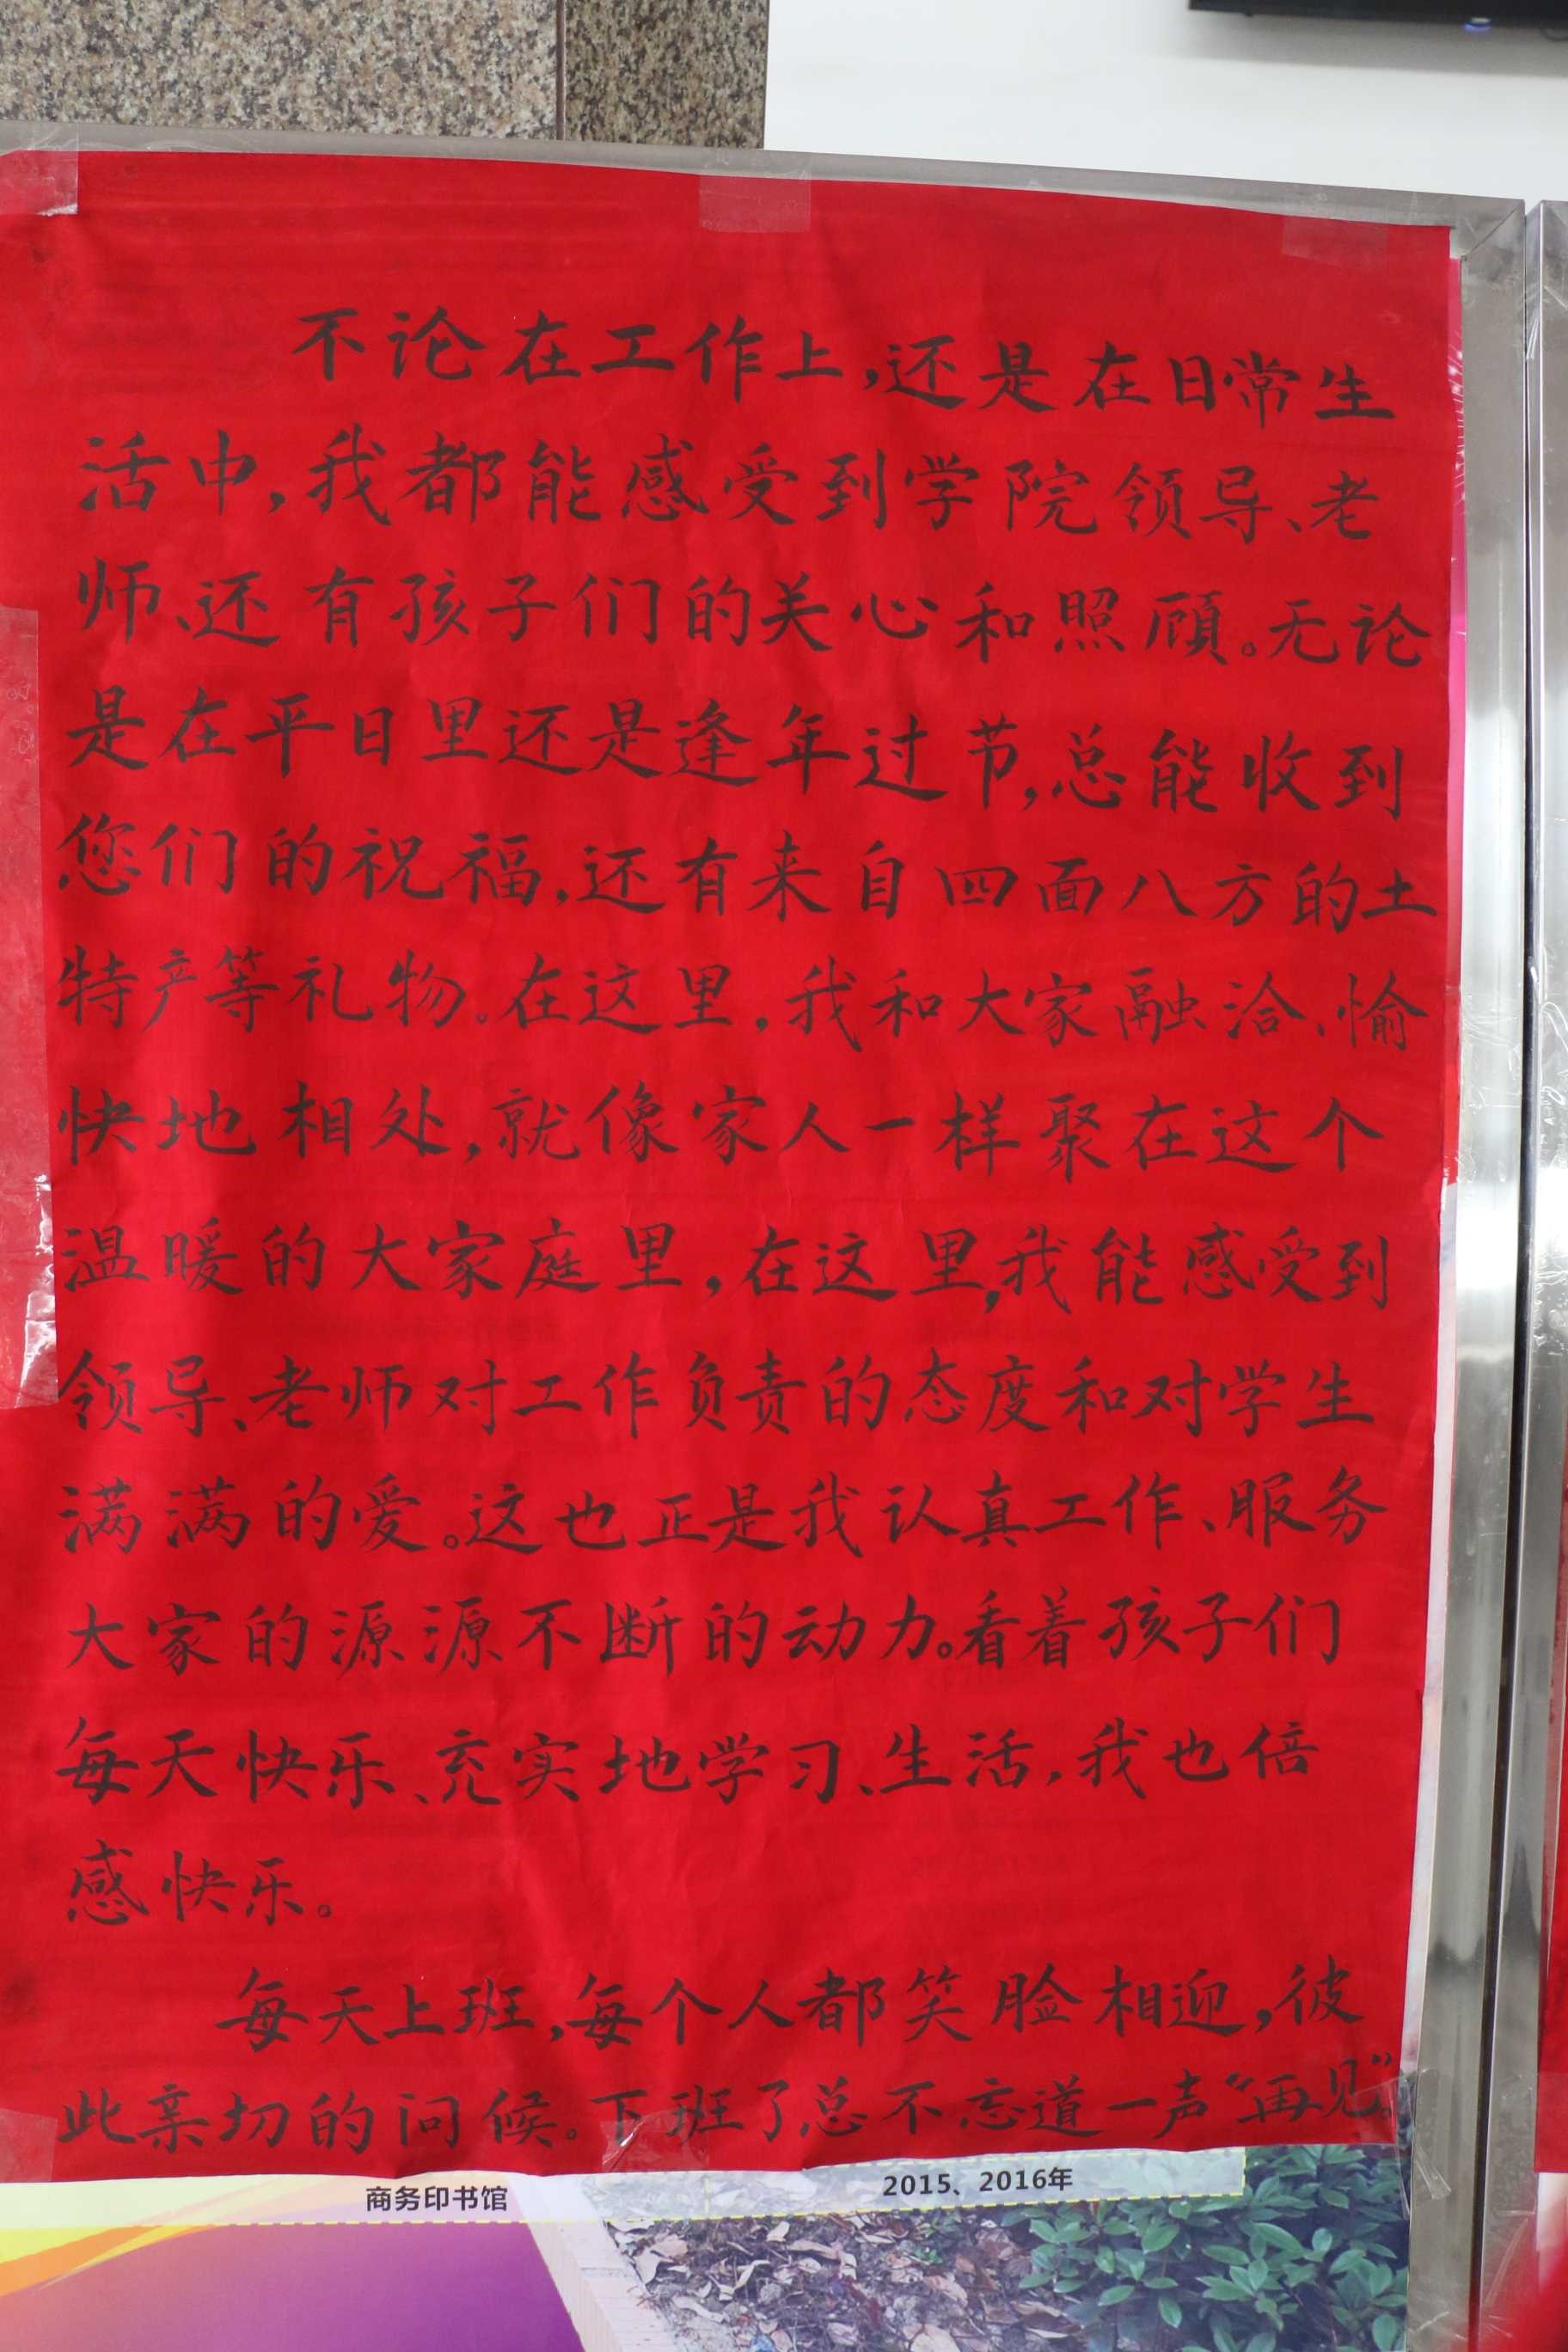 不论在工作上,还是在日常生
活中,我都能感受到学院领导、老
师、还有孩子们的关心和照顾。无论
是在平日里还是逢年过节,总能收到
您们的祝福,还有来自四面八方的土
特产等礼物。在这里,我和大家融洽、愉
快地相处,就像家人一样聚在这个
温暖的大家庭里,在这里,我能感受到
领导、老师对工作负责的态度和对学生
满满的爱。这也正是我认真工作、服务
大家的源源不断的动力。看着孩子们
每天快乐、充实地学习、生活,我也倍
感快乐。
每天上班,每个人都笑脸相迎,彼
此亲切的问候。下班了总不忘道一声“再见”
商务印书馆
2015、2016年